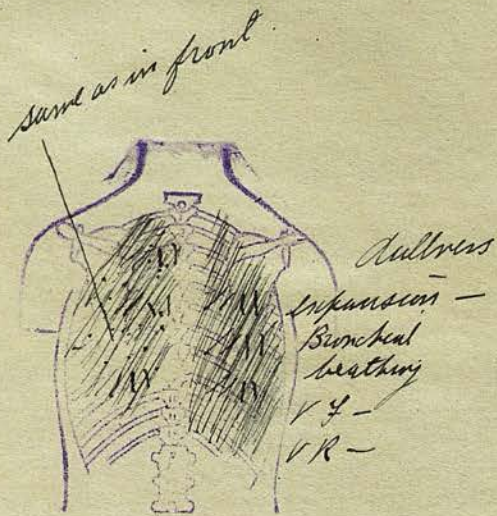 same as in front.
dullness
expansion —
Bronchial
breathing
V F —
V R —